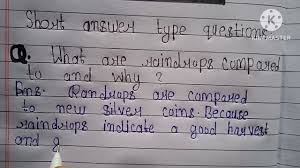 Short answer type questions
Q. What are raindrops compared
to and why ?
Ans. Raindrops are compared
to new silver coins. Because
raindrops indicate a good harvest
and g
KINEMASTER